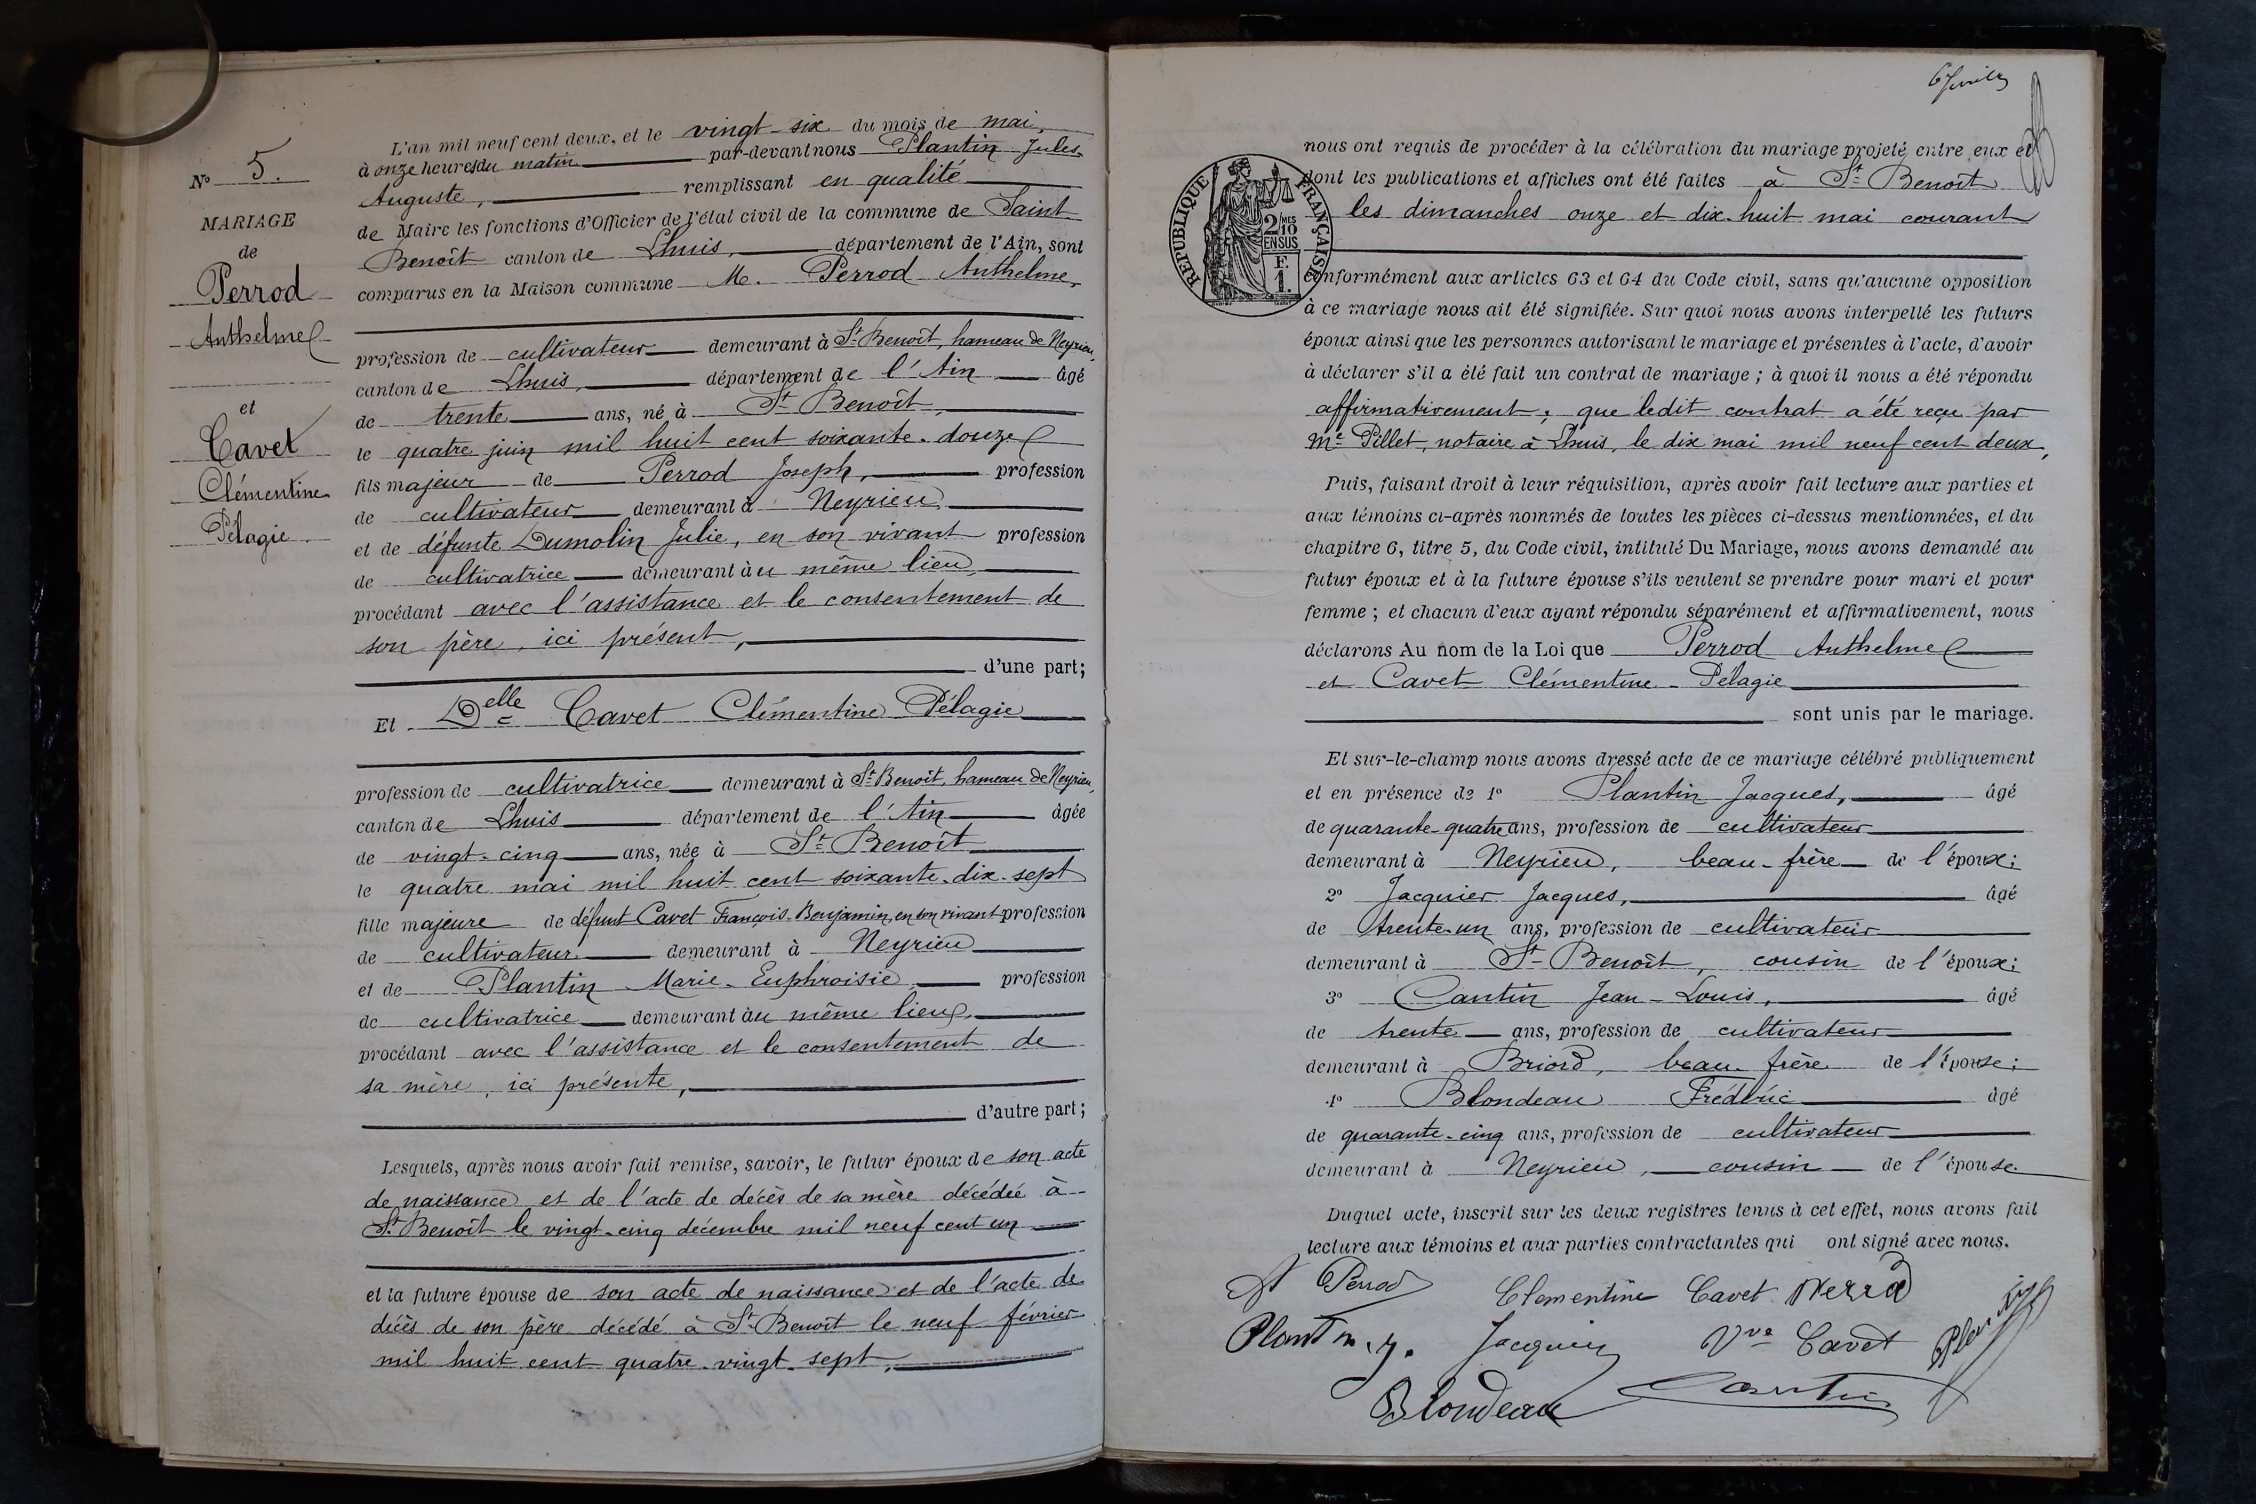 N° 5.
MARIAGE
de
Perrod
Anthelme
et
Cavet
Clémentine
Pélagie
L'an mil neuf cent deux, et le vingt-six du mois de mai,
à onze heures du matin par-devant nous Plantin Jules
Auguste, remplissant en qualité
de Maire les fonctions d'Officier de l'état civil de la commune de Saint
Benoît canton de Lhuis, département de l'Ain, sont
comparus en la Maison commune M. Perrod Anthelme,
profession de cultivateur demeurant à St Benoît, hameau de Neyrieu,
canton de Lhuis, département de l'Ain âgé
de trente ans, né à St Benoît,
le quatre juin mil huit cent soixante-douze
fils majeur de Perrod Joseph, profession
de cultivateur demeurant à Neyrieu
et de défunte Dumolin Julie, en son vivant profession
de cultivatrice demeurant au même lieu,
procédant avec l'assistance et le consentement de
son père, ici présent,
d'une part;
Et Delle Cavet Clémentine Pélagie
profession de cultivatrice demeurant à St Benoît, hameau de Neyrieu,
canton de Lhuis département de l'Ain âgée
de vingt-cinq ans, née à St Benoît
le quatre mai mil huit cent soixante-dix-sept
fille majeure de défunt Cavet François-Benjamin, en son vivant profession
de cultivateur demeurant à Neyrieu
et de Plantin Marie-Euphroisie, profession
de cultivatrice demeurant au même lieu,
procédant avec l'assistance et le consentement de
sa mère, ici présente,
d'autre part;
Lesquels, après nous avoir fait remise, savoir, le futur époux de son acte
de naissance et de l'acte de décès de sa mère décédée à
St Benoît le vingt-cinq décembre mil neuf cent un
et la future épouse de son acte de naissance et de l'acte de
décès de son père décédé à St Benoît le neuf février
mil huit cent quatre-vingt-sept,
nous ont requis de procéder à la célébration du mariage projeté entre eux et
dont les publications et affiches ont été faites à St Benoît
les dimanches onze et dix-huit mai courant
RÉPUBLIQUE FRANÇAISE
2/10 MES
EN SUS
F.
1.
conformément aux articles 63 et 64 du Code civil, sans qu'aucune opposition
à ce mariage nous ait été signifiée. Sur quoi nous avons interpellé les futurs
époux ainsi que les personnes autorisant le mariage et présentes à l'acte, d'avoir
à déclarer s'il a été fait un contrat de mariage ; à quoi il nous a été répondu
affirmativement, que ledit contrat a été reçu par
Me Pillet, notaire à Lhuis, le dix mai mil neuf cent deux,
Puis, faisant droit à leur réquisition, après avoir fait lecture aux parties et
aux témoins ci-après nommés de toutes les pièces ci-dessus mentionnées, et du
chapitre 6, titre 5, du Code civil, intitulé Du Mariage, nous avons demandé au
futur époux et à la future épouse s'ils veulent se prendre pour mari et pour
femme ; et chacun d'eux ayant répondu séparément et affirmativement, nous
déclarons Au nom de la Loi que Perrod Anthelme
et Cavet Clémentine-Pélagie
sont unis par le mariage.
Et sur-le-champ nous avons dressé acte de ce mariage célébré publiquement
et en présence de 1° Plantin Jacques, âgé
de quarante-quatre ans, profession de cultivateur
demeurant à Neyrieu, beau-frère de l'époux;
2° Jacquier Jacques, âgé
de trente-un ans, profession de cultivateur
demeurant à St Benoît, cousin de l'époux;
3° Cantin Jean-Louis, âgé
de trente ans, profession de cultivateur
demeurant à Briord, beau-frère de l'épouse;
4° Blondeau Frédéric âgé
de quarante-cinq ans, profession de cultivateur
demeurant à Neyrieu, cousin de l'épouse.
Duquel acte, inscrit sur les deux registres tenus à cet effet, nous avons fait
lecture aux témoins et aux parties contractantes qui ont signé avec nous.
A Perrod Clementine Cavet Perrod
Plantin J. Jacquier Vve Cavet Plantin
Blondeau Cantin